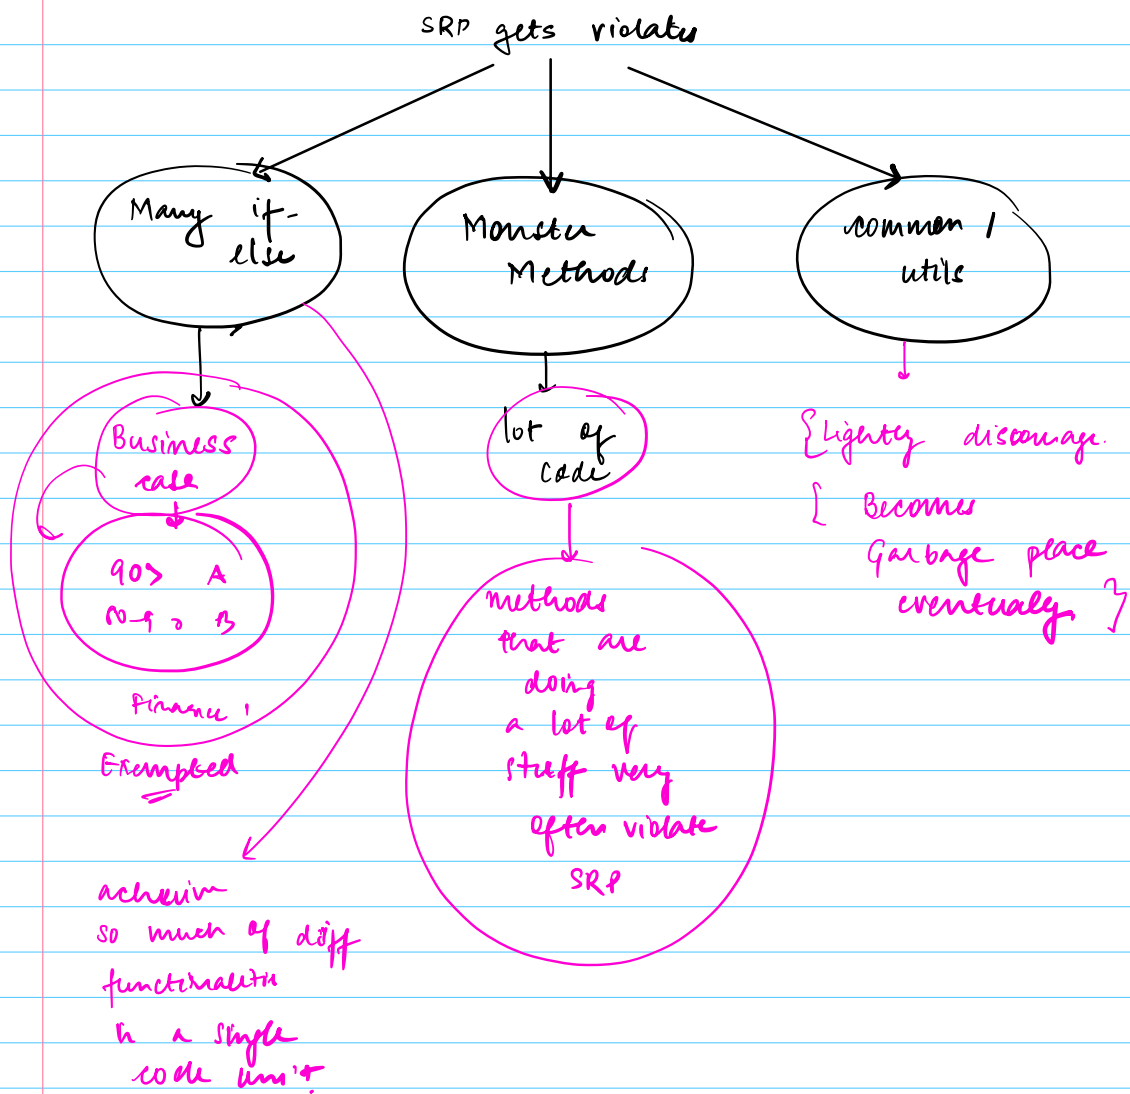 SRP gets violates
Many if-
else
Monster
Methods
common /
utils
Business
case
90> A
B
Finance
Exempted
achievin
so much of diff
functionalitis
in a single
code unit
lot of
code
methods
that are
doing
a lot of
stuff very
often violate
SRP
{Lightly discourage.
{ Becomes
Garbage place
eventually }